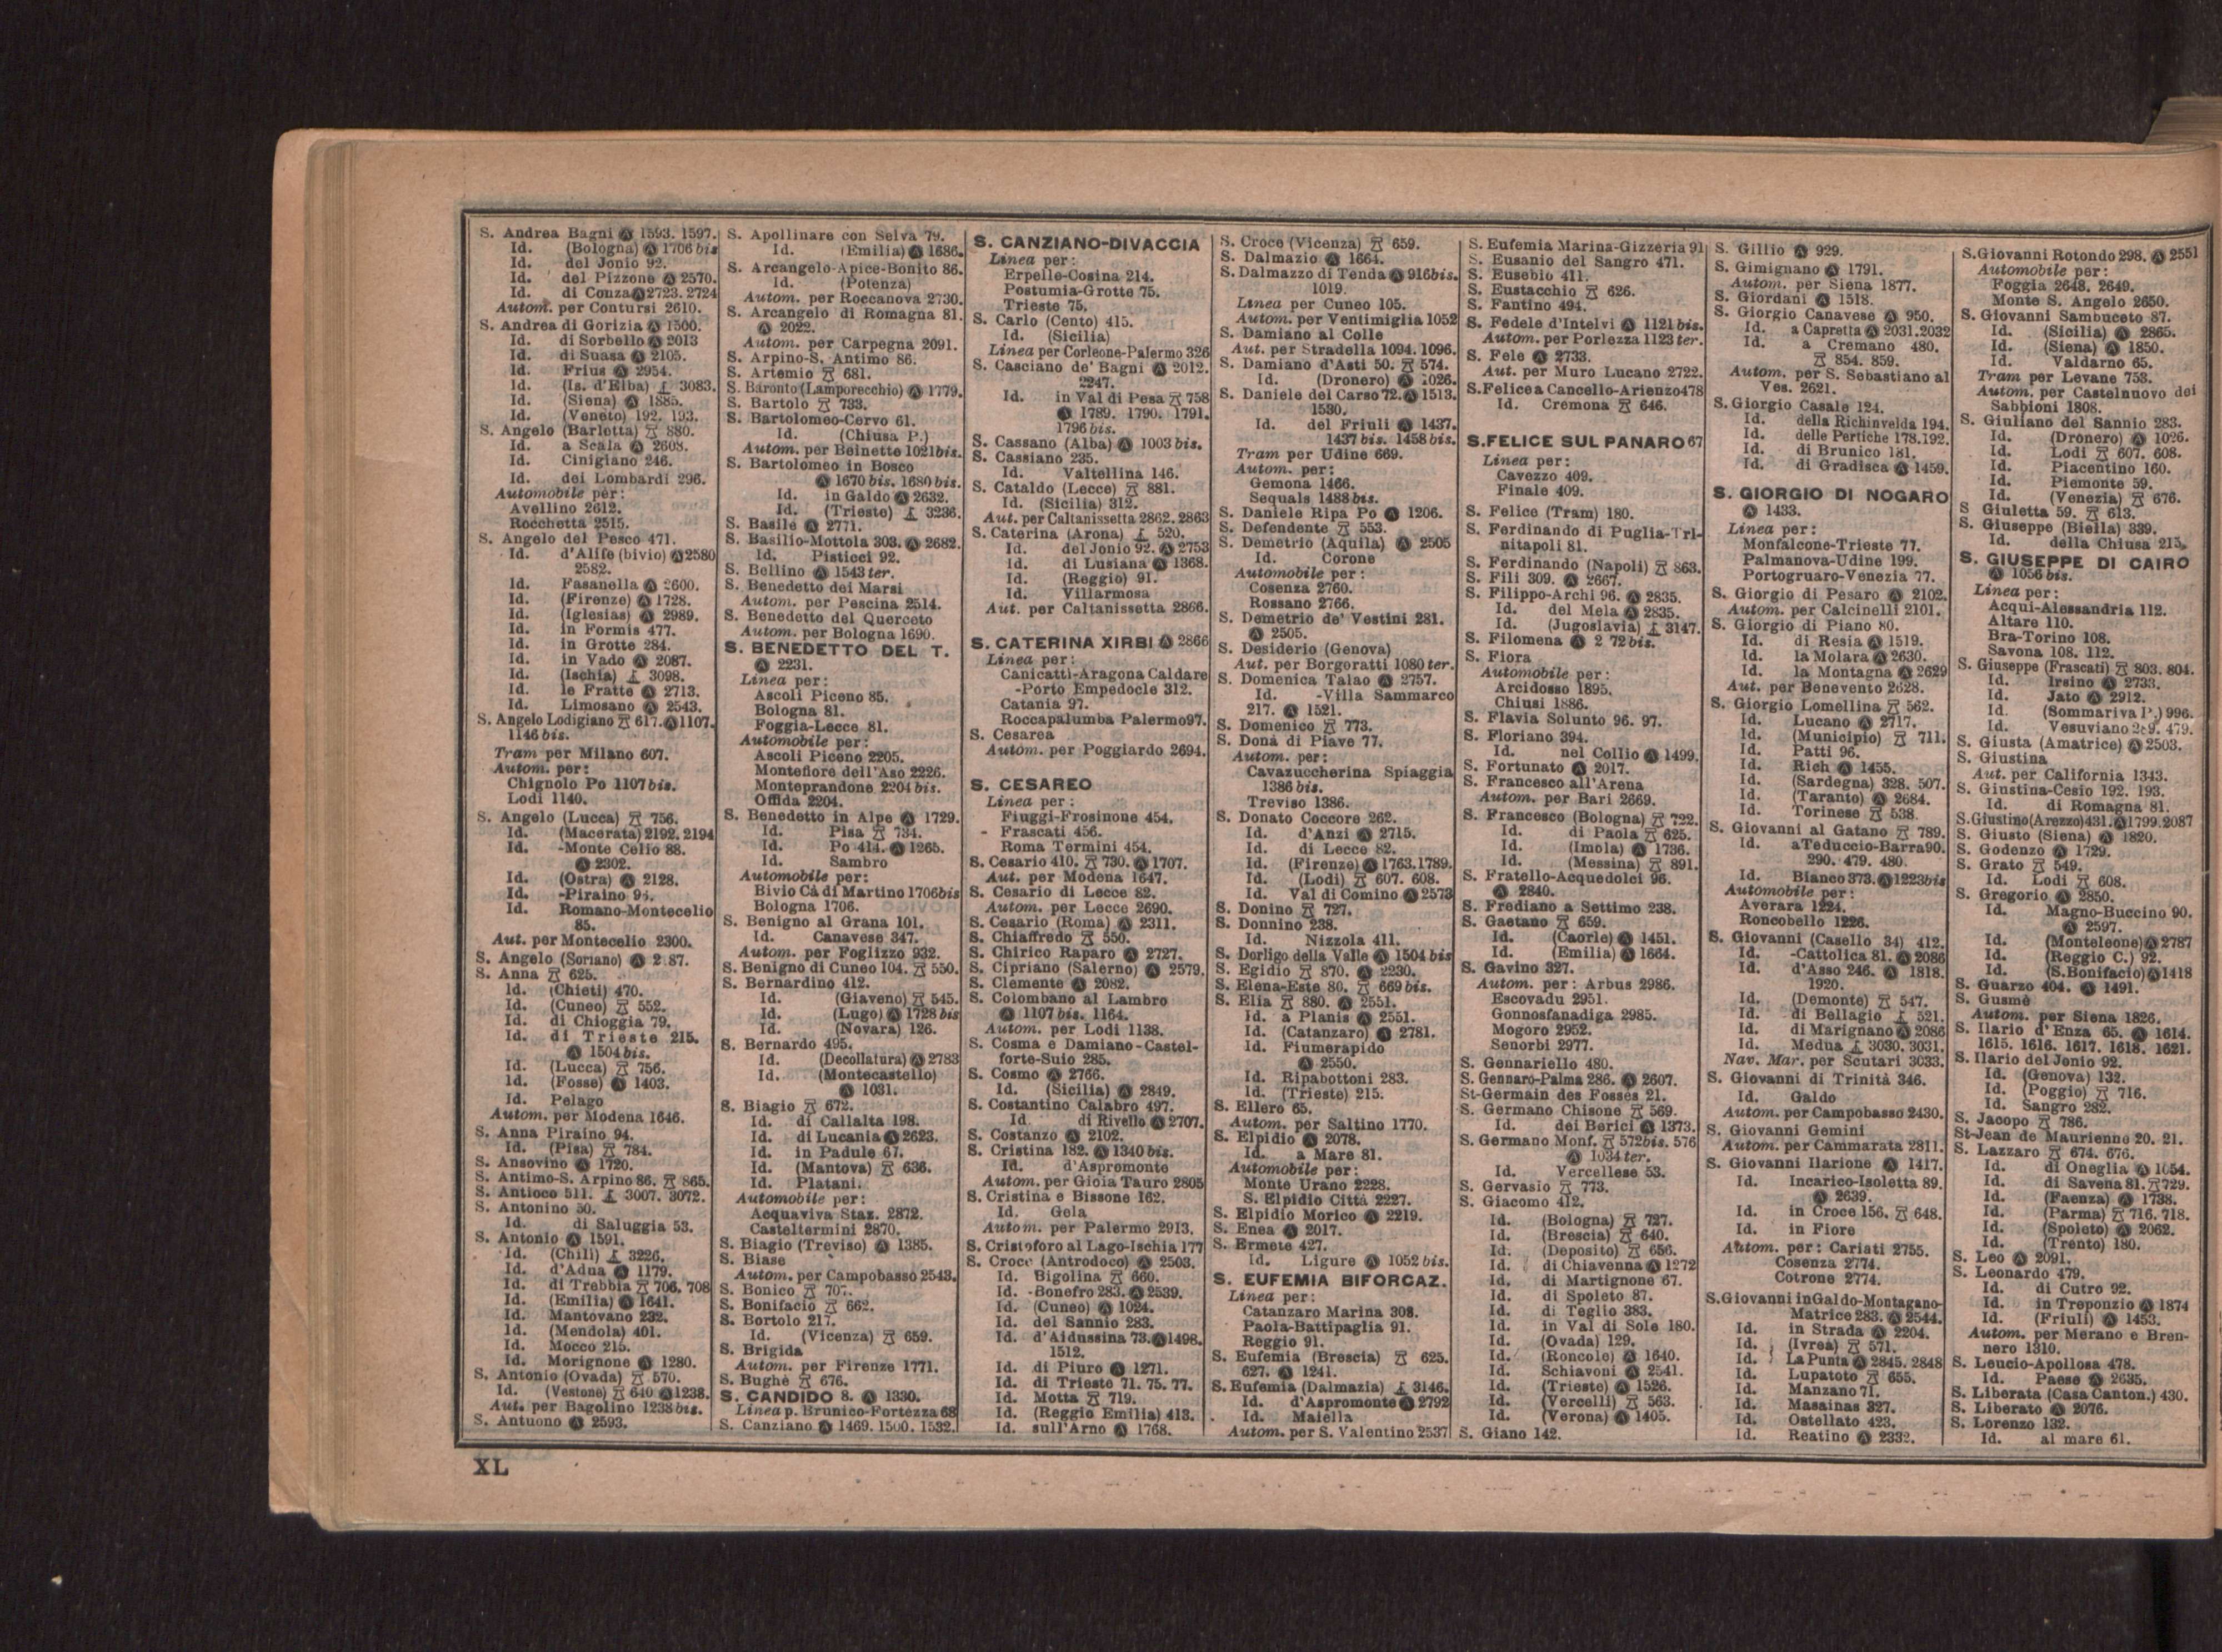 S. Andrea Bagni Ⓐ 1593. 1597.
Id. (Bologna) Ⓐ 1706 bis
Id. del Jonio 92.
Id. del Pizzone Ⓐ 2570.
Id. di Conza Ⓐ 2723. 2724
Autom. per Contursi 2610.
S. Andrea di Gorizia Ⓐ 1500.
Id. di Sorbello Ⓐ 2013
Id. di Suasa Ⓐ 2105.
Id. Frius Ⓐ 2954.
Id. (Is. d'Elba) 3083.
Id. (Siena) Ⓐ 1885.
Id. (Veneto) 192. 193.
S. Angelo (Barletta) 880.
Id. a Scala Ⓐ 2608.
Id. Cinigiano 246.
Id. dei Lombardi 296.
Automobile per:
Avellino 2612.
Rocchetta 2515.
S. Angelo del Pesco 471.
Id. d'Alife (bivio) Ⓐ 2580
2582.
Id. Fasanella Ⓐ 2600.
Id. (Firenze) Ⓐ 1728.
Id. (Iglesias) Ⓐ 2989.
Id. in Formis 477.
Id. in Grotte 284.
Id. in Vado Ⓐ 2087.
Id. (Ischia) 3098.
Id. le Fratte Ⓐ 2713.
Id. Limosano Ⓐ 2543.
S. Angelo Lodigiano 617. Ⓐ 1107.
1146 bis.
Tram per Milano 607.
Autom. per:
Chignolo Po 1107 bis.
Lodi 1140.
S. Angelo (Lucca) 756.
Id. (Macerata) 2192. 2194
Id. -Monte Celio 88.
Ⓐ 2302.
Id. (Ostra) Ⓐ 2128.
Id. -Piraino
Id. Romano-Montecelio
85.
Aut. per Montecelio 2300.
S. Angelo (Soriano) Ⓐ
S. Anna 625.
Id. (Chieti) 470.
Id. (Cuneo) 552.
Id. di Chioggia 79.
Id. di Trieste 215.
Ⓐ 1504 bis.
Id. (Lucca) 756.
Id. (Fosse) Ⓐ 1403.
Id. Pelago
Autom. per Modena 1646.
S. Anna Piraino 94.
Id. (Pisa) 784.
S. Ansovino Ⓐ 1720.
S. Antimo-S. Arpino 86. 865.
S. Antioco 511. 3007. 3072.
S. Antonino 50.
Id. di Saluggia 53.
S. Antonio Ⓐ 1591.
Id. (Chili) 3226.
Id. d'Adua Ⓐ 1179.
Id. di Trebbia 706. 708
Id. (Emilia) Ⓐ 1641.
Id. Mantovano 232.
Id. (Mendola) 401.
Id. Mocco 215.
Id. Morignone Ⓐ 1280.
S. Antonio (Ovada) 570.
Id. (Vestone) 640 Ⓐ 1238.
Aut. per Bagolino 1238 bis.
S. Antuono Ⓐ 2593.
S. Apollinare con Selva 79.
Id. (Emilia) Ⓐ 1686.
S. Arcangelo-Apice-Bonito 86.
Id. (Potenza)
Autom. per Roccanova 2730.
S. Arcangelo di Romagna 81.
Ⓐ 2022.
Autom. per Carpegna 2091.
S. Arpino-S. Antimo 86.
S. Artemio 681.
S. Baronto (Lamporecchio) Ⓐ 1779.
S. Bartolo 733.
S. Bartolomeo-Cervo 61.
Id. (Chiusa P.)
Autom. per Beinette 1021 bis.
S. Bartolomeo in Bosco
Ⓐ 1670 bis. 1680 bis.
Id. in Galdo Ⓐ 2632.
Id. (Trieste) 3236.
S. Basile Ⓐ 2771.
S. Basilio-Mottola 303. Ⓐ 2682.
Id. Pisticci 92.
S. Bellino Ⓐ 1543 ter.
S. Benedetto dei Marsi
Autom. per Pescina 2514.
S. Benedetto del Querceto
Autom. per Bologna 1690.
S. BENEDETTO DEL T.
Ⓐ 2231.
Linea per:
Ascoli Piceno 85.
Bologna 81.
Foggia-Lecce 81.
Automobile per:
Ascoli Piceno 2205.
Montefiore dell'Aso 2226.
Monteprandone 2204 bis.
Offida 2204.
S. Benedetto in Alpe Ⓐ 1729.
Id. Pisa 734.
Id. Po 414. Ⓐ 1265.
Id. Sambro
Automobile per:
Bivio Cà di Martino 1706 bis
Bologna 1706.
S. Benigno al Grana 101.
Id. Canavese 347.
Autom. per Foglizzo 932.
S. Benigno di Cuneo 104. 550.
S. Bernardino 412.
Id. (Giaveno) 545.
Id. (Lugo) Ⓐ 1728 bis
Id. (Novara) 126.
S. Bernardo 495.
Id. (Decollatura) Ⓐ 2783
Id. (Montecastello)
Ⓐ 1031.
S. Biagio 672.
Id. di Callalta 198.
Id. di Lucania Ⓐ 2623.
Id. in Padule 67.
Id. (Mantova) 636.
Id. Platani.
Automobile per:
Acquaviva Staz. 2872.
Casteltermini 2870.
S. Biagio (Treviso) Ⓐ 1385.
S. Biase
Autom. per Campobasso 2543.
S. Bonico 707.
S. Bonifacio 662.
S. Bortolo 217.
Id. (Vicenza) 659.
S. Brigida
Autom. per Firenze 1771.
S. Bughè 676.
S. CANDIDO 8. Ⓐ 1330.
Linea p. Brunico-Fortezza 68
S. Canziano Ⓐ 1469. 1500. 1532.
S. CANZIANO-DIVACCIA
Linea per:
Erpelle-Cosina 214.
Postumia-Grotte 75.
Trieste 75.
S. Carlo (Cento) 415.
Id. (Sicilia)
Linea per Corleone-Palermo 326
S. Casciano de' Bagni Ⓐ 2012.
2247.
Id. in Val di Pesa 758
Ⓐ 1789. 1790. 1791.
1796 bis.
S. Cassano (Alba) Ⓐ 1003 bis.
S. Cassiano 235.
Id. Valtellina 146.
S. Cataldo (Lecce) 881.
Id. (Sicilia) 312.
Aut. per Caltanissetta 2862. 2863
S. Caterina (Arona) 520.
Id. del Jonio 92. Ⓐ 2753
Id. di Lusiana Ⓐ 1368.
Id. (Reggio) 91.
Id. Villarmosa
Aut. per Caltanissetta 2866.
S. CATERINA XIRBI Ⓐ 2866
Linea per:
Canicattì-Aragona Caldare
-Porto Empedocle 312.
Catania 97.
Roccapalumba Palermo 97.
S. Cesarea
Autom. per Poggiardo 2694.
S. CESAREO
Linea per:
Fiuggi-Frosinone 454.
Frascati 456.
Roma Termini 454.
S. Cesario 410. 730. Ⓐ 1707.
Aut. per Modena 1647.
S. Cesario di Lecce 82.
Autom. per Lecce 2690.
S. Cesario (Roma) Ⓐ 2311.
S. Chiaffredo 550.
S. Chirico Raparo Ⓐ 2727.
S. Cipriano (Salerno) Ⓐ 2579.
S. Clemente Ⓐ 2082.
S. Colombano al Lambro
Ⓐ 1107 bis. 1164.
Autom. per Lodi 1138.
S. Cosma e Damiano-Castel-
forte-Suio 285.
S. Cosmo Ⓐ 2766.
Id. (Sicilia) Ⓐ 2849.
S. Costantino Calabro 497.
Id. di Rivello Ⓐ 2707.
S. Costanzo Ⓐ 2102.
S. Cristina 182. Ⓐ 1340 bis.
Id. d'Aspromonte
Autom. per Gioia Tauro 2805
S. Cristina e Bissone 162.
Id. Gela
Autom. per Palermo 2913.
S. Cristoforo al Lago-Ischia 177
S. Croce (Antrodoco) Ⓐ 2503.
Id. Bigolina 660.
Id. -Bonefro 283. Ⓐ 2539.
Id. (Cuneo) Ⓐ 1024.
Id. del Sannio 283.
Id. d'Aidussina 73. Ⓐ 1496.
1512.
Id. di Piuro Ⓐ 1271.
Id. di Trieste 71. 75. 77.
Id. Motta 719.
Id. (Reggio Emilia) 413.
Id. sull'Arno Ⓐ 1768.
S. Croce (Vicenza) 659.
S. Dalmazio Ⓐ 1664.
S. Dalmazzo di Tenda Ⓐ 916 bis.
1019.
Linea per Cuneo 105.
Autom. per Ventimiglia 1052
S. Damiano al Colle
Aut. per Stradella 1094. 1096.
S. Damiano d'Asti 50. 574.
Id. (Dronero) Ⓐ 1026.
S. Daniele del Carso 72. Ⓐ 1513.
1530.
Id. del Friuli Ⓐ 1437.
1437 bis. 1458 bis.
Tram per Udine 669.
Autom. per:
Gemona 1466.
Sequals 1488 bis.
S. Daniele Ripa Po Ⓐ 1206.
S. Defendente 553.
S. Demetrio (Aquila) Ⓐ 2505
Id. Corone
Automobile per:
Cosenza 2760.
Rossano 2766.
S. Demetrio de' Vestini 281.
Ⓐ 2505.
S. Desiderio (Genova)
Aut. per Borgoratti 1080 ter.
S. Domenica Talao Ⓐ 2757.
Id. -Villa Sammarco
217. Ⓐ 1521.
S. Domenico 773.
S. Donà di Piave 77.
Autom. per:
Cavazuccherina Spiaggia
1386 bis.
Treviso 1386.
S. Donato Coccore 262.
Id. d'Anzi Ⓐ 2715.
Id. di Lecce 82.
Id. (Firenze) Ⓐ 1763. 1789.
Id. (Lodi) 607. 608.
Id. Val di Comino Ⓐ 2573
S. Donino 727.
S. Donnino 238.
Id. Nizzola 411.
S. Dorligo della Valle Ⓐ 1504 bis
S. Egidio 870. Ⓐ 2230.
S. Elena-Este 80. 669 bis.
S. Elia 880. Ⓐ 2551.
Id. a Planis Ⓐ 2551.
Id. (Catanzaro) Ⓐ 2781.
Id. Fiumerapido
Ⓐ 2550.
Id. Ripabottoni 283.
Id. (Trieste) 215.
S. Ellero 65.
Autom. per Saltino 1770.
S. Elpidio Ⓐ 2078.
Id. a Mare 81.
Automobile per:
Monte Urano 2228.
S. Elpidio Città 2227.
S. Elpidio Morico Ⓐ 2219.
S. Enea Ⓐ 2017.
S. Ermete 427.
Id. Ligure Ⓐ 1052 bis.
S. EUFEMIA BIFORCAZ.
Linea per:
Catanzaro Marina 308.
Paola-Battipaglia 91.
Reggio 91.
S. Eufemia (Brescia) 625.
627. Ⓐ 1241.
S. Eufemia (Dalmazia) 3146.
Id. d'Aspromonte Ⓐ 2792
Id. Maiella
Autom. per S. Valentino 2537
S. Eufemia Marina-Gizzeria 91
S. Eusanio del Sangro 471.
S. Eusebio 411.
S. Eustacchio 626.
S. Fantino 494.
S. Fedele d'Intelvi Ⓐ 1121 bis.
Autom. per Porlezza 1123 ter.
S. Fele Ⓐ 2733.
Aut. per Muro Lucano 2722.
S. Felice a Cancello-Arienzo 478
Id. Cremona 646.
S. FELICE SUL PANARO 67
Linea per:
Cavezzo 409.
Finale 409.
S. Felice (Tram) 180.
S. Ferdinando di Puglia-Tri-
nitapoli 81.
S. Ferdinando (Napoli) 863.
S. Fili 309. Ⓐ 2667.
S. Filippo-Archi 96. Ⓐ 2835.
Id. del Mela Ⓐ 2835.
Id. (Jugoslavia) 3147.
S. Filomena Ⓐ
S. Fiora
Automobile per:
Arcidosso 1895.
Chiusi 1886.
S. Flavia Solunto 96. 97.
S. Floriano 394.
Id. nel Collio Ⓐ 1499.
S. Fortunato Ⓐ 2017.
S. Francesco all'Arena
Autom. per Bari 2669.
S. Francesco (Bologna) 722.
Id. di Paola 625.
Id. (Imola) Ⓐ 1736.
Id. (Messina) 891.
S. Fratello-Acquedolci 96.
Ⓐ 2840.
S. Frediano a Settimo 238.
S. Gaetano 659.
Id. (Caorle) Ⓐ 1451.
Id. (Emilia) Ⓐ 1664.
S. Gavino 327.
Autom. per: Arbus 2986.
Escovadu 2951.
Gonnosfanadiga 2985.
Mogoro 2952.
Senorbì 2977.
S. Gennariello 480.
S. Gennaro-Palma 286. Ⓐ 2607.
St-Germain des Fossés 21.
S. Germano Chisone 569.
Id. dei Berici Ⓐ 1373.
S. Germano Monf. 572 bis. 576
Ⓐ 1034 ter.
Id. Vercellese 53.
S. Gervasio 773.
S. Giacomo 412.
Id. (Bologna) 727.
Id. (Brescia) 640.
Id. (Deposito) 656.
Id. di Chiavenna Ⓐ 1272
Id. di Martignone 67.
Id. di Spoleto 87.
Id. di Teglio 383.
Id. in Val di Sole 180.
Id. (Ovada) 129.
Id. (Roncole) Ⓐ 1640.
Id. Schiavoni Ⓐ 2541.
Id. (Trieste) Ⓐ 1526.
Id. (Vercelli) 563.
Id. (Verona) Ⓐ 1405.
S. Giano 142.
S. Gillio Ⓐ 929.
S. Gimignano Ⓐ 1791.
Autom. per Siena 1877.
S. Giordani Ⓐ 1518.
S. Giorgio Canavese Ⓐ 950.
Id. a Capretta Ⓐ 2031. 2032
Id. a Cremano 480.
854. 859.
Autom. per S. Sebastiano al
Ves. 2621.
S. Giorgio Casale 124.
Id. della Richinvelda 194.
Id. delle Pertiche 178. 192.
Id. di Brunico 181.
Id. di Gradisca Ⓐ 1459.
S. GIORGIO DI NOGARO
Ⓐ 1433.
Linea per:
Monfalcone-Trieste 77.
Palmanova-Udine 199.
Portogruaro-Venezia 77.
S. Giorgio di Pesaro Ⓐ 2102.
Autom. per Calcinelli 2101.
S. Giorgio di Piano 80.
Id. di Resia Ⓐ 1519.
Id. la Molara Ⓐ 2630.
Id. la Montagna Ⓐ 2629
Aut. per Benevento 2628.
S. Giorgio Lomellina 562.
Id. Lucano Ⓐ 2717.
Id. (Municipio) 711.
Id. Patti 96.
Id. Rich Ⓐ 1455.
Id. (Sardegna) 328. 507.
Id. (Taranto) Ⓐ 2684.
Id. Torinese 538.
S. Giovanni al Gatano 789.
Id. a Teduccio-Barra 90.
290. 479. 480.
Id. Bianco 373. Ⓐ 1223 bis
Automobile per:
Averara 1224.
Roncobello 1226.
S. Giovanni (Casello 34) 412.
Id. -Cattolica 81. Ⓐ 2086
Id. d'Asso 246. Ⓐ 1818.
1920.
Id. (Demonte) 547.
Id. di Bellagio 521.
Id. di Marignano Ⓐ 2086
Id. Medua 3030. 3031.
Nav. Mar. per Scutari 3033.
S. Giovanni di Trinità 346.
Id. Galdo
Autom. per Campobasso 2430.
S. Giovanni Gemini
Autom. per Cammarata 2811.
S. Giovanni Ilarione Ⓐ 1417.
Id. Incarico-Isoletta 89.
Ⓐ 2639.
Id. in Croce 156. 648.
Id. in Fiore
Autom. per: Cariati 2755.
Cosenza 2774.
Cotrone 2774.
S. Giovanni in Galdo-Montagano-
Matrice 283. Ⓐ 2544.
Id. in Strada Ⓐ 2204.
Id. (Ivrea) 571.
Id. La Punta Ⓐ 2845. 2848
Id. Lupatoto 655.
Id. Manzano 71.
Id. Masainas 327.
Id. Ostellato 423.
Id. Reatino Ⓐ 2332.
S. Giovanni Rotondo 298. Ⓐ 2551
Automobile per:
Foggia 2648. 2649.
Monte S. Angelo 2650.
S. Giovanni Sambuceto 87.
Id. (Sicilia) Ⓐ 2865.
Id. (Siena) Ⓐ 1850.
Id. Valdarno 65.
Tram per Levane 753.
Autom. per Castelnuovo dei
Sabbioni 1808.
S. Giuliano del Sannio 283.
Id. (Dronero) Ⓐ 1026.
Id. Lodi 607. 608.
Id. Piacentino 160.
Id. Piemonte 59.
Id. (Venezia) 676.
S Giuletta 59. 613.
S. Giuseppe (Biella) 339.
Id. della Chiusa 215.
S. GIUSEPPE DI CAIRO
Ⓐ 1056 bis.
Linea per:
Acqui-Alessandria 112.
Altare 110.
Bra-Torino 108.
Savona 108. 112.
S. Giuseppe (Frascati) 803. 804.
Id. Irsino Ⓐ 2733.
Id. Jato Ⓐ 2912.
Id. (Sommariva P.) 996.
Id. Vesuviano 479.
S. Giusta (Amatrice) Ⓐ 2503.
S. Giustina
Aut. per California 1343.
S. Giustina-Cesio 192. 193.
Id. di Romagna 81.
S. Giustino (Arezzo) 431. Ⓐ 1799. 2087
S. Giusto (Siena) Ⓐ 1820.
S. Godenzo Ⓐ 1729.
S. Grato 549.
Id. Lodi 608.
S. Gregorio Ⓐ 2850.
Id. Magno-Buccino 90.
Ⓐ 2597.
Id. (Monteleone) Ⓐ 2787
Id. (Reggio C.) 92.
Id. (S. Bonifacio) Ⓐ 1418
S. Guarzo 404. Ⓐ 1491.
S. Gusmè
Autom. per Siena 1826.
S. Ilario d'Enza 65. Ⓐ 1614.
1615. 1616. 1617. 1618. 1621.
S. Ilario del Jonio 92.
Id. (Genova) 132.
Id. (Poggio) 716.
Id. Sangro 282.
S. Jacopo 786.
St-Jean de Maurienne 20. 21.
S. Lazzaro 674. 676.
Id. di Oneglia Ⓐ 1054.
Id. di Savena 81. 729.
Id. (Faenza) Ⓐ 1738.
Id. (Parma) 716. 718.
Id. (Spoleto) Ⓐ 2062.
Id. (Trento) 180.
S. Leo Ⓐ 2091.
S. Leonardo 479.
Id. di Cutro 92.
Id. in Treponzio Ⓐ 1874
Id. (Friuli) Ⓐ 1453.
Autom. per Merano e Bren-
nero 1310.
S. Leucio-Apollosa 478.
Id. Paese Ⓐ 2635.
S. Liberata (Casa Canton.) 430.
S. Liberato Ⓐ 2076.
S. Lorenzo 132.
Id. al mare 61.
XL